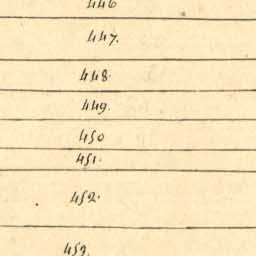 446
447.
448.
449.
450
451.
452.
453.